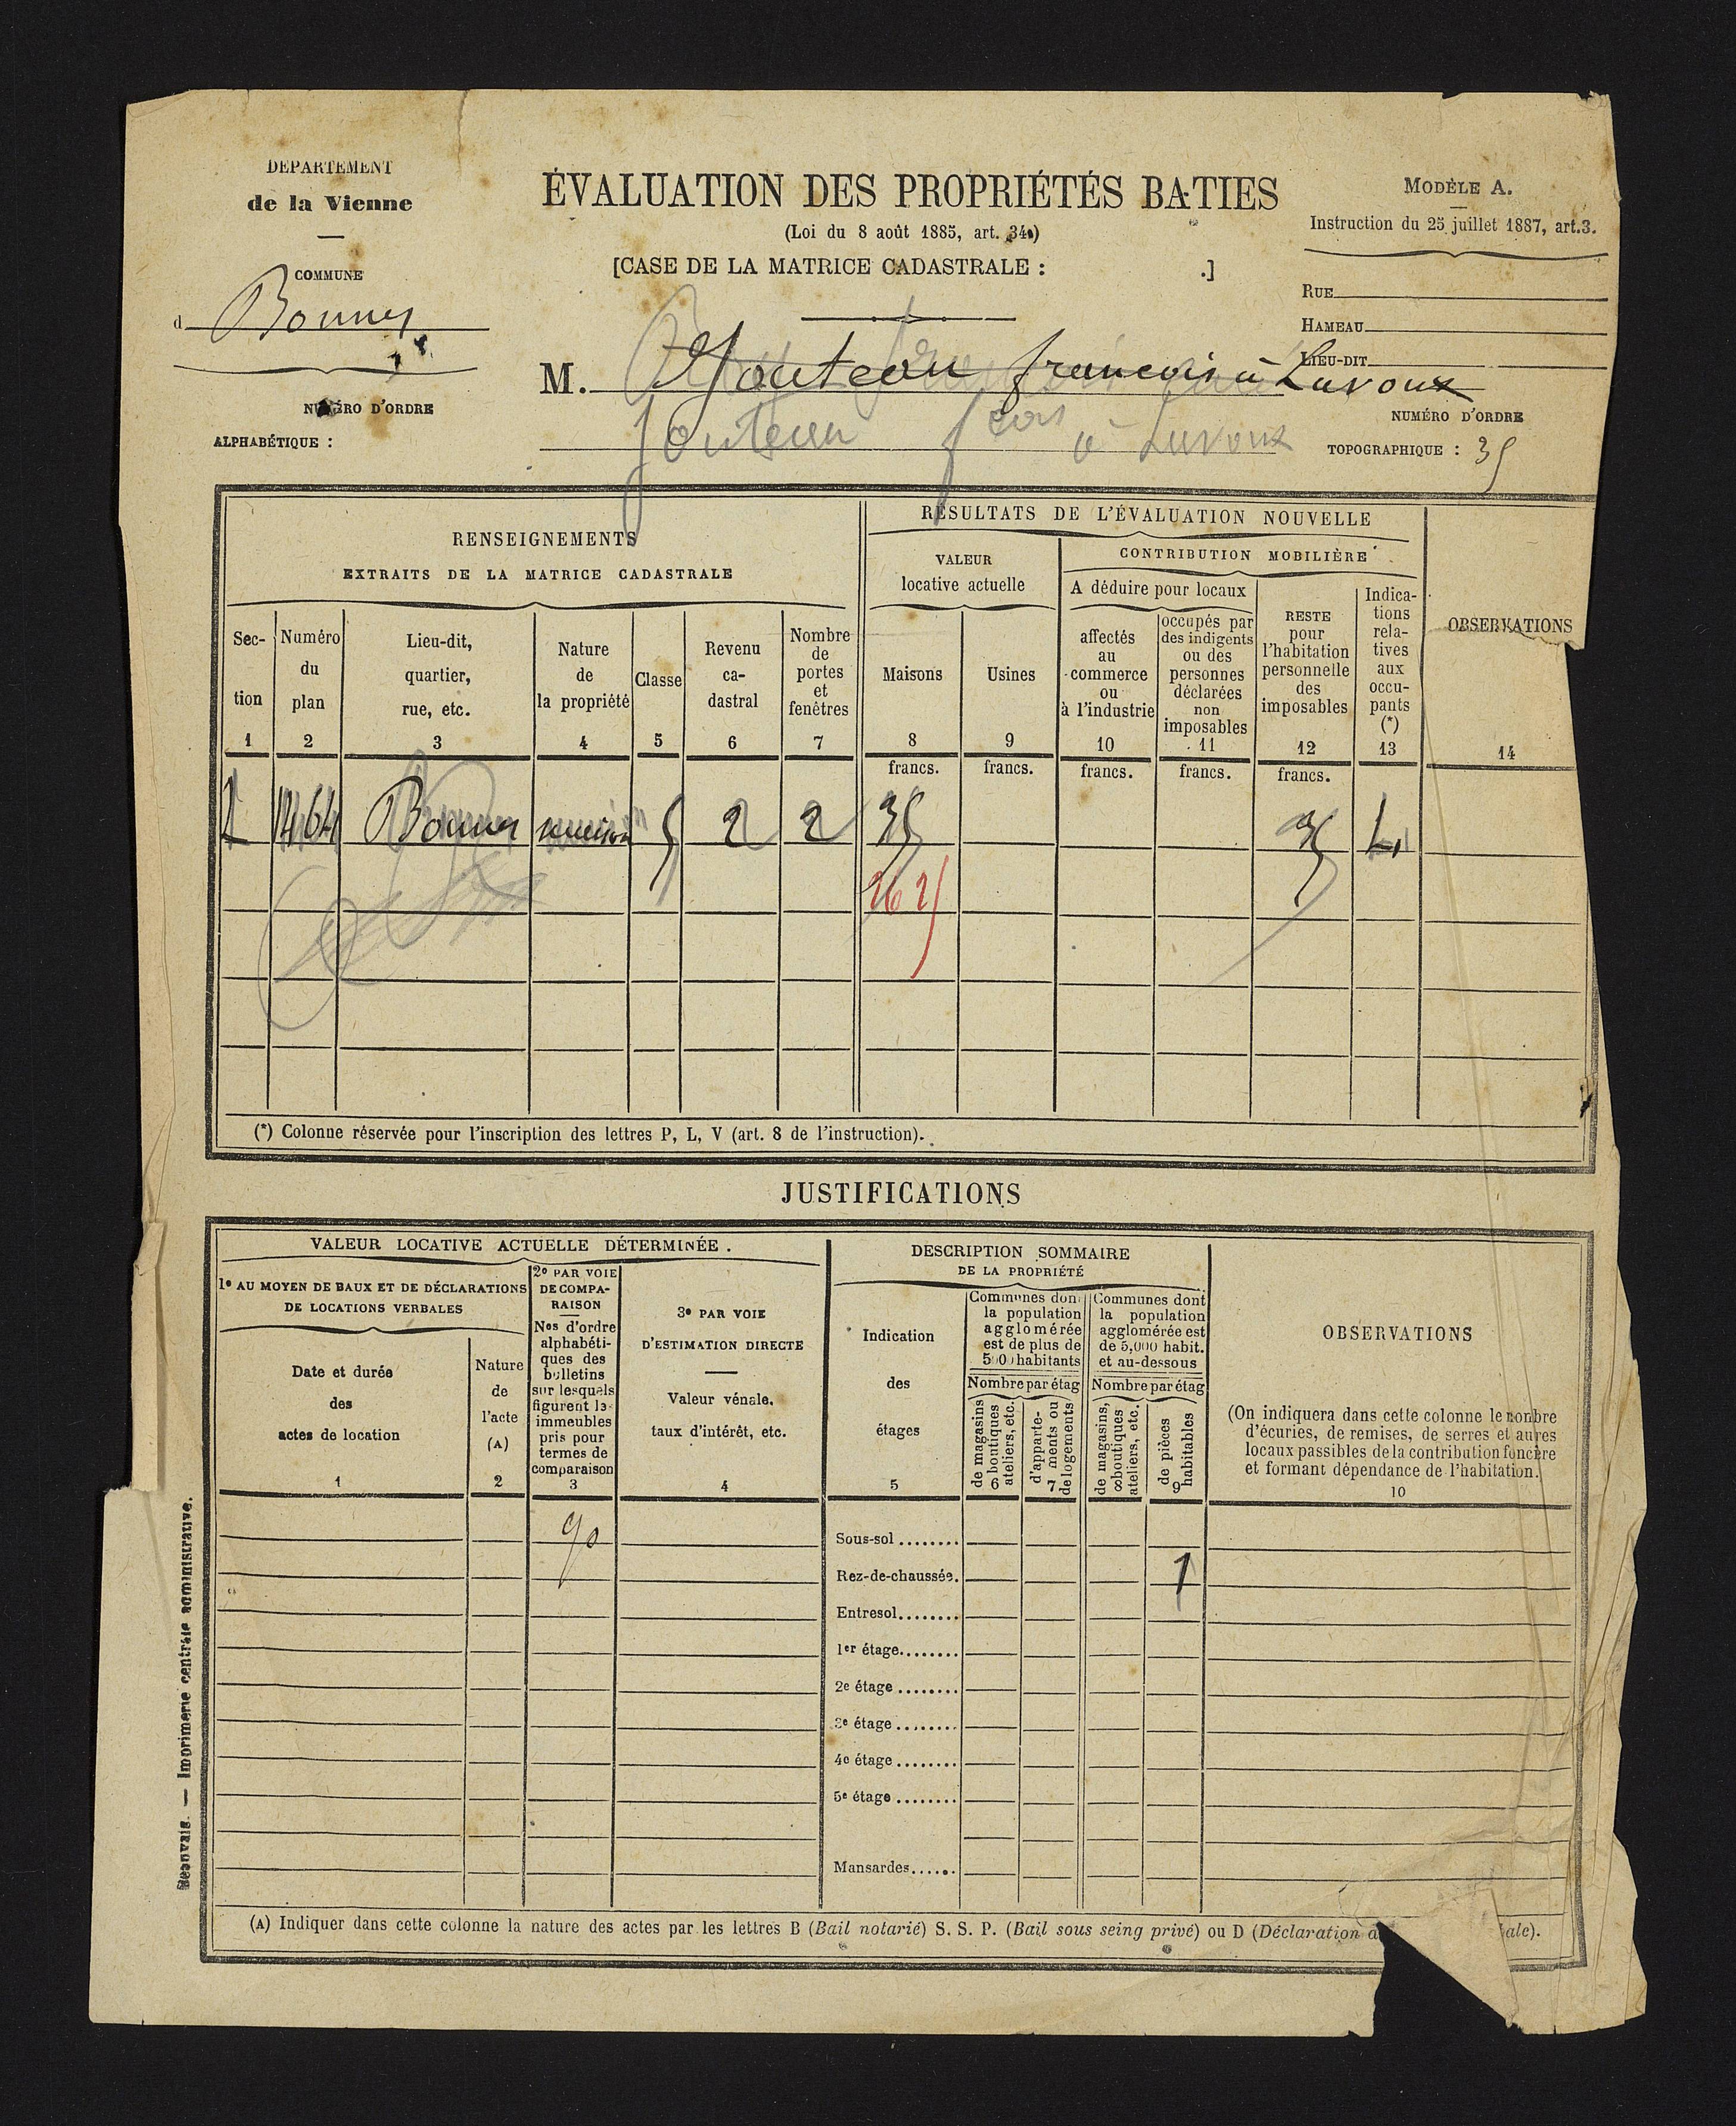 DÉPARTEMENT
de la Vienne
COMMUNE
d Bonnes
NUMÉRO D'ORDRE
ALPHABÉTIQUE :
ÉVALUATION DES PROPRIÉTÉS BATIES
(Loi du 8 août 1885, art. 34.)
[CASE DE LA MATRICE CADASTRALE : .]
M. françois à Lavoux
fcois à Lavoux
MODÈLE A.
Instruction du 25 juillet 1887, art. 3.
RUE
HAMEAU
LIEU-DIT
NUMÉRO D'ORDRE
TOPOGRAPHIQUE : 35
RENSEIGNEMENTS
EXTRAITS DE LA MATRICE CADASTRALE
RÉSULTATS DE L'ÉVALUATION NOUVELLE
VALEUR
locative actuelle
CONTRIBUTION MOBILIÈRE
A déduire pour locaux
Sec-
tion
1
Numéro
du
plan
2
Lieu-dit,
quartier,
rue, etc.
3
Nature
de
la propriété
4
Classe
5
Revenu
ca-
dastral
6
Nombre
de
portes
et
fenêtres
7
Maisons
8
Usines
9
affectés
au
commerce
ou
à l'industrie
10
occupés par
des indigents
ou des
personnes
déclarées
non
imposables
11
RESTE
pour
l'habitation
personnelle
des
imposables
12
Indica-
tions
rela-
tives
aux
occu-
pants
(*)
13
OBSERVATIONS
14
francs. francs. francs. francs. francs.
1464 Bonnes maison 5 2 2 35 35 L
26 25
(*) Colonne réservée pour l'inscription des lettres P, L, V (art. 8 de l'instruction).
JUSTIFICATIONS
VALEUR LOCATIVE ACTUELLE DÉTERMINÉE.
1° AU MOYEN DE BAUX ET DE DÉCLARATIONS
DE LOCATIONS VERBALES
Date et durée
des
actes de location
1
Nature
de
l'acte
(A)
2
2° PAR VOIE
DE COMPA-
RAISON
Nos d'ordre
alphabéti-
ques des
bulletins
sur lesquels
figurent les
immeubles
pris pour
termes de
comparaison
3
3° PAR VOIE
D'ESTIMATION DIRECTE
Valeur vénale,
taux d'intérêt, etc.
4
DESCRIPTION SOMMAIRE
DE LA PROPRIÉTÉ
Indication
des
étages
5
Communes dont
la population
agglomérée
est de plus de
5000 habitants
Nombre par étag
de magasins
boutiques
ateliers, etc.
6
d'apparte-
ments ou
de logements
7
Communes dont
la population
agglomérée est
de 5,000 habit.
et au-dessous
Nombre par étag
de magasins,
boutiques
ateliers, etc.
8
de pièces
habitables
9
OBSERVATIONS
(On indiquera dans cette colonne le nombre
d'écuries, de remises, de serres et autres
locaux passibles de la contribution foncière
et formant dépendance de l'habitation.
10
90
Sous-sol ........
Rez-de-chaussée. 1
Entresol........
1er étage........
2e étage ........
3e étage ........
4e étage ........
5e étage ........
Mansardes......
(A) Indiquer dans cette colonne la nature des actes par les lettres B (Bail notarié) S. S. P. (Bail sous seing privé) ou D (Déclaration ale).
Beauvais. — Imprimerie centrale administrative.